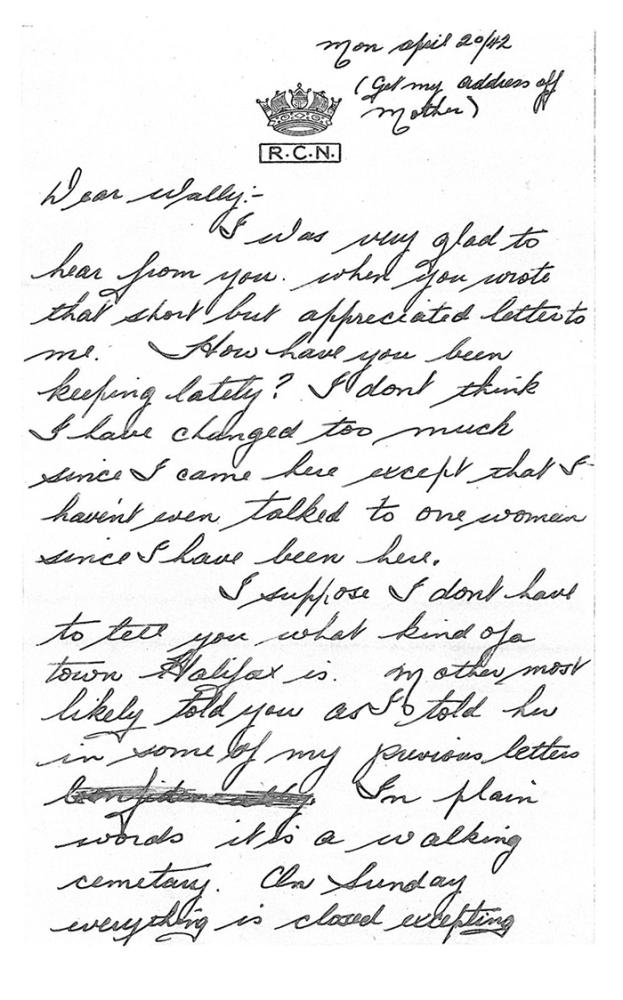 Mon April 20/42
(Get my address off
Mother)
R.C.N.
Dear Wally:-
I was very glad to
hear from you. when you wrote
that short but appreciated letter to
me. How have you been
keeping lately? I dont think
I have changed too much
since I came here except that I
haven't even talked to one woman
since I have been here.
I suppose I dont have
to tell you what kind of a
town Halifax is. Mother most
likely told you as I told her
in some of my previous letters
In plain
words it is a walking
cemetary. On Sunday
everything is closed excepting